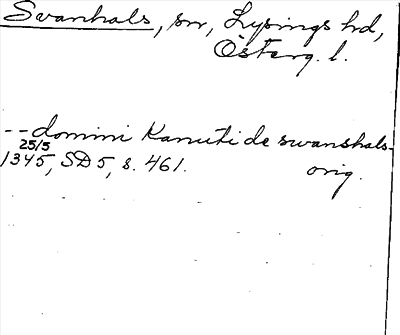 Svanhals, sn, Lysings hd,
Österg. l.
-- domini Kanuti de swanshals
25/5
1345, SD 5, s. 461. orig.